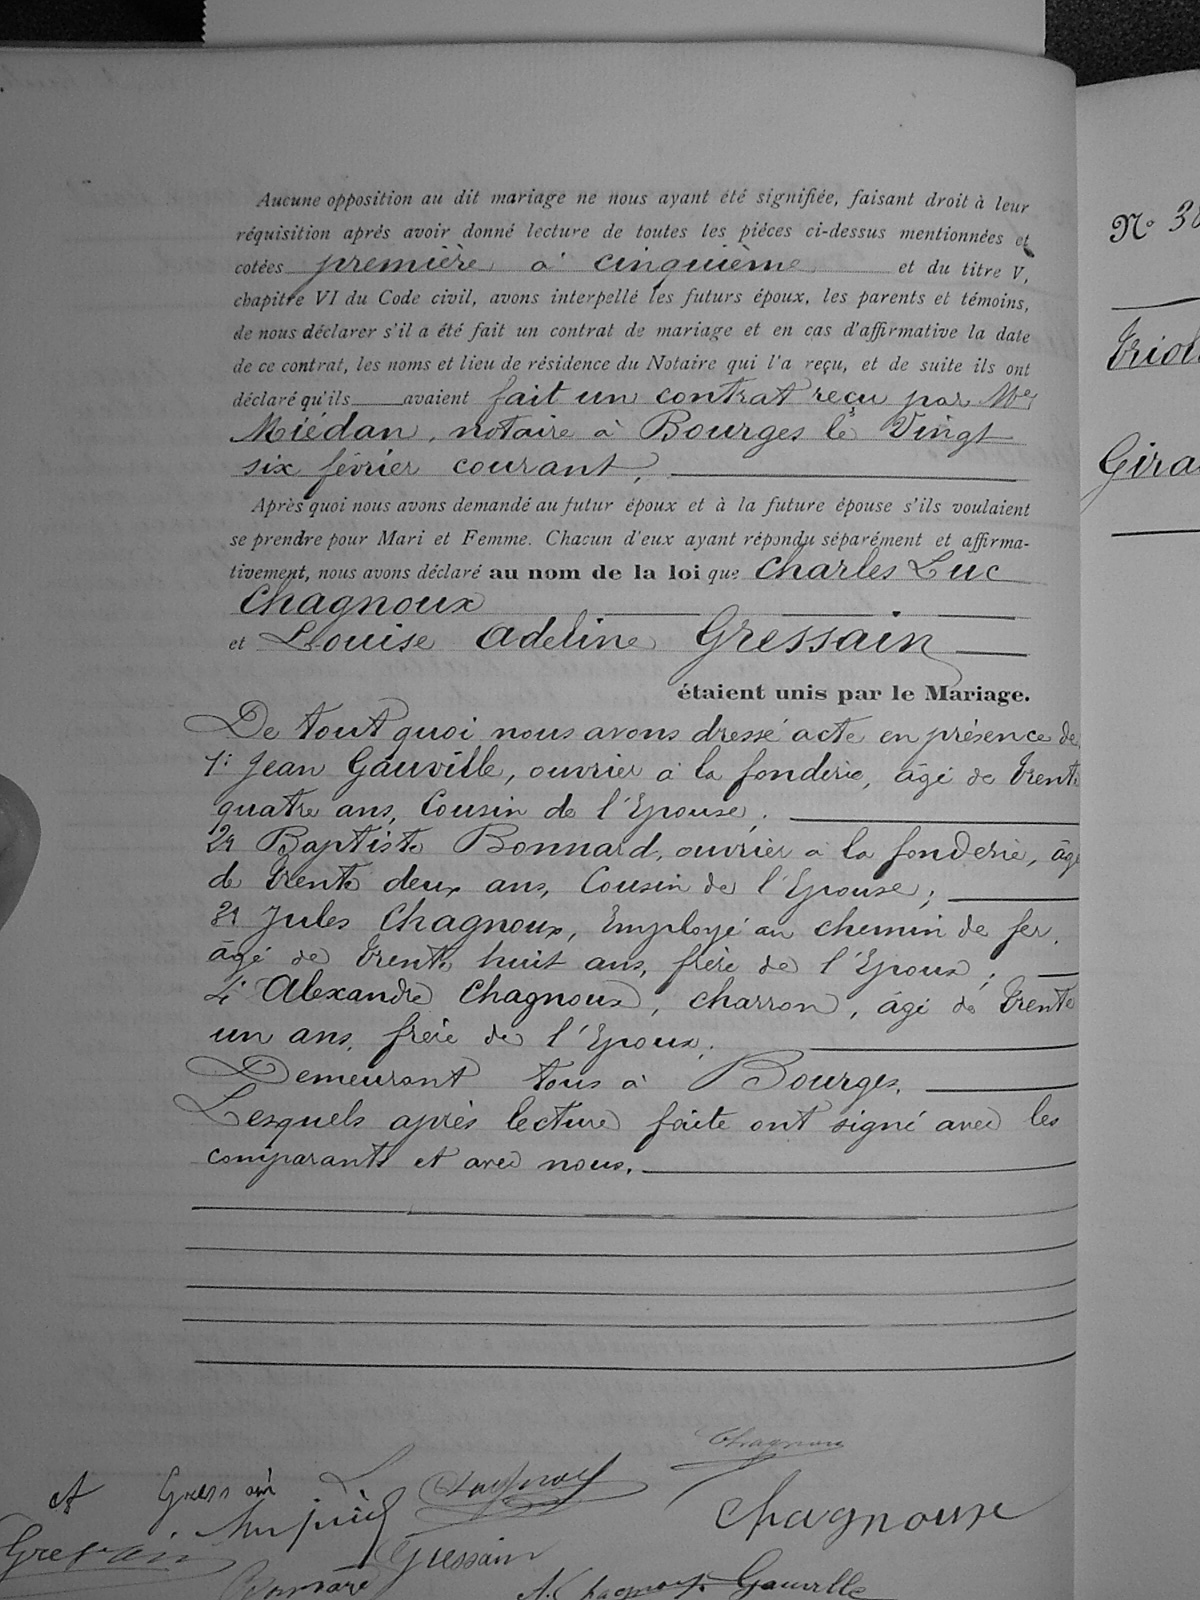 Aucune opposition au dit mariage ne nous ayant été signifiée, faisant droit à leur
réquisition après avoir donné lecture de toutes les pièces ci-dessus mentionnées et
cotées première à cinquième et du titre V,
chapitre VI du Code civil, avons interpellé les futurs époux, les parents et témoins,
de nous déclarer s'il a été fait un contrat de mariage et en cas d'affirmative la date
de ce contrat, les noms et lieu de résidence du Notaire qui l'a reçu, et de suite ils ont
déclaré qu'ils avaient fait un contrat reçu par Me
Miédan, notaire à Bourges le Vingt
six février courant,
Après quoi nous avons demandé au futur époux et à la future épouse s'ils voulaient
se prendre pour Mari et Femme. Chacun d'eux ayant répondu séparément et affirma-
tivement, nous avons déclaré au nom de la loi que Charles Luc
Chagnoux
et Louise Adeline Gressain
étaient unis par le Mariage.
De tout quoi nous avons dressé acte en présence de
1º Jean Gauville, ouvrier à la fonderie, âgé de trente
quatre ans, Cousin de l'Epouse;
2º Baptiste Bonnard, ouvrier à la fonderie, âgé
de trente deux ans, Cousin de l'Epouse;
3º Jules Chagnoux, Employé au chemin de fer,
âgé de trente huit ans, frère de l'Epoux;
4º Alexandre Chagnoux, charron, âgé de trente
un ans, frère de l'Epoux;
Demeurant tous à Bourges.
Lesquels après lecture faite ont signé avec les
comparants et avec nous.
Chagnoux
A Gressain L Chagnoux
Chagnoux
Gressain
A. Chagnoux Gauville
Nº 38
Triou
Gira